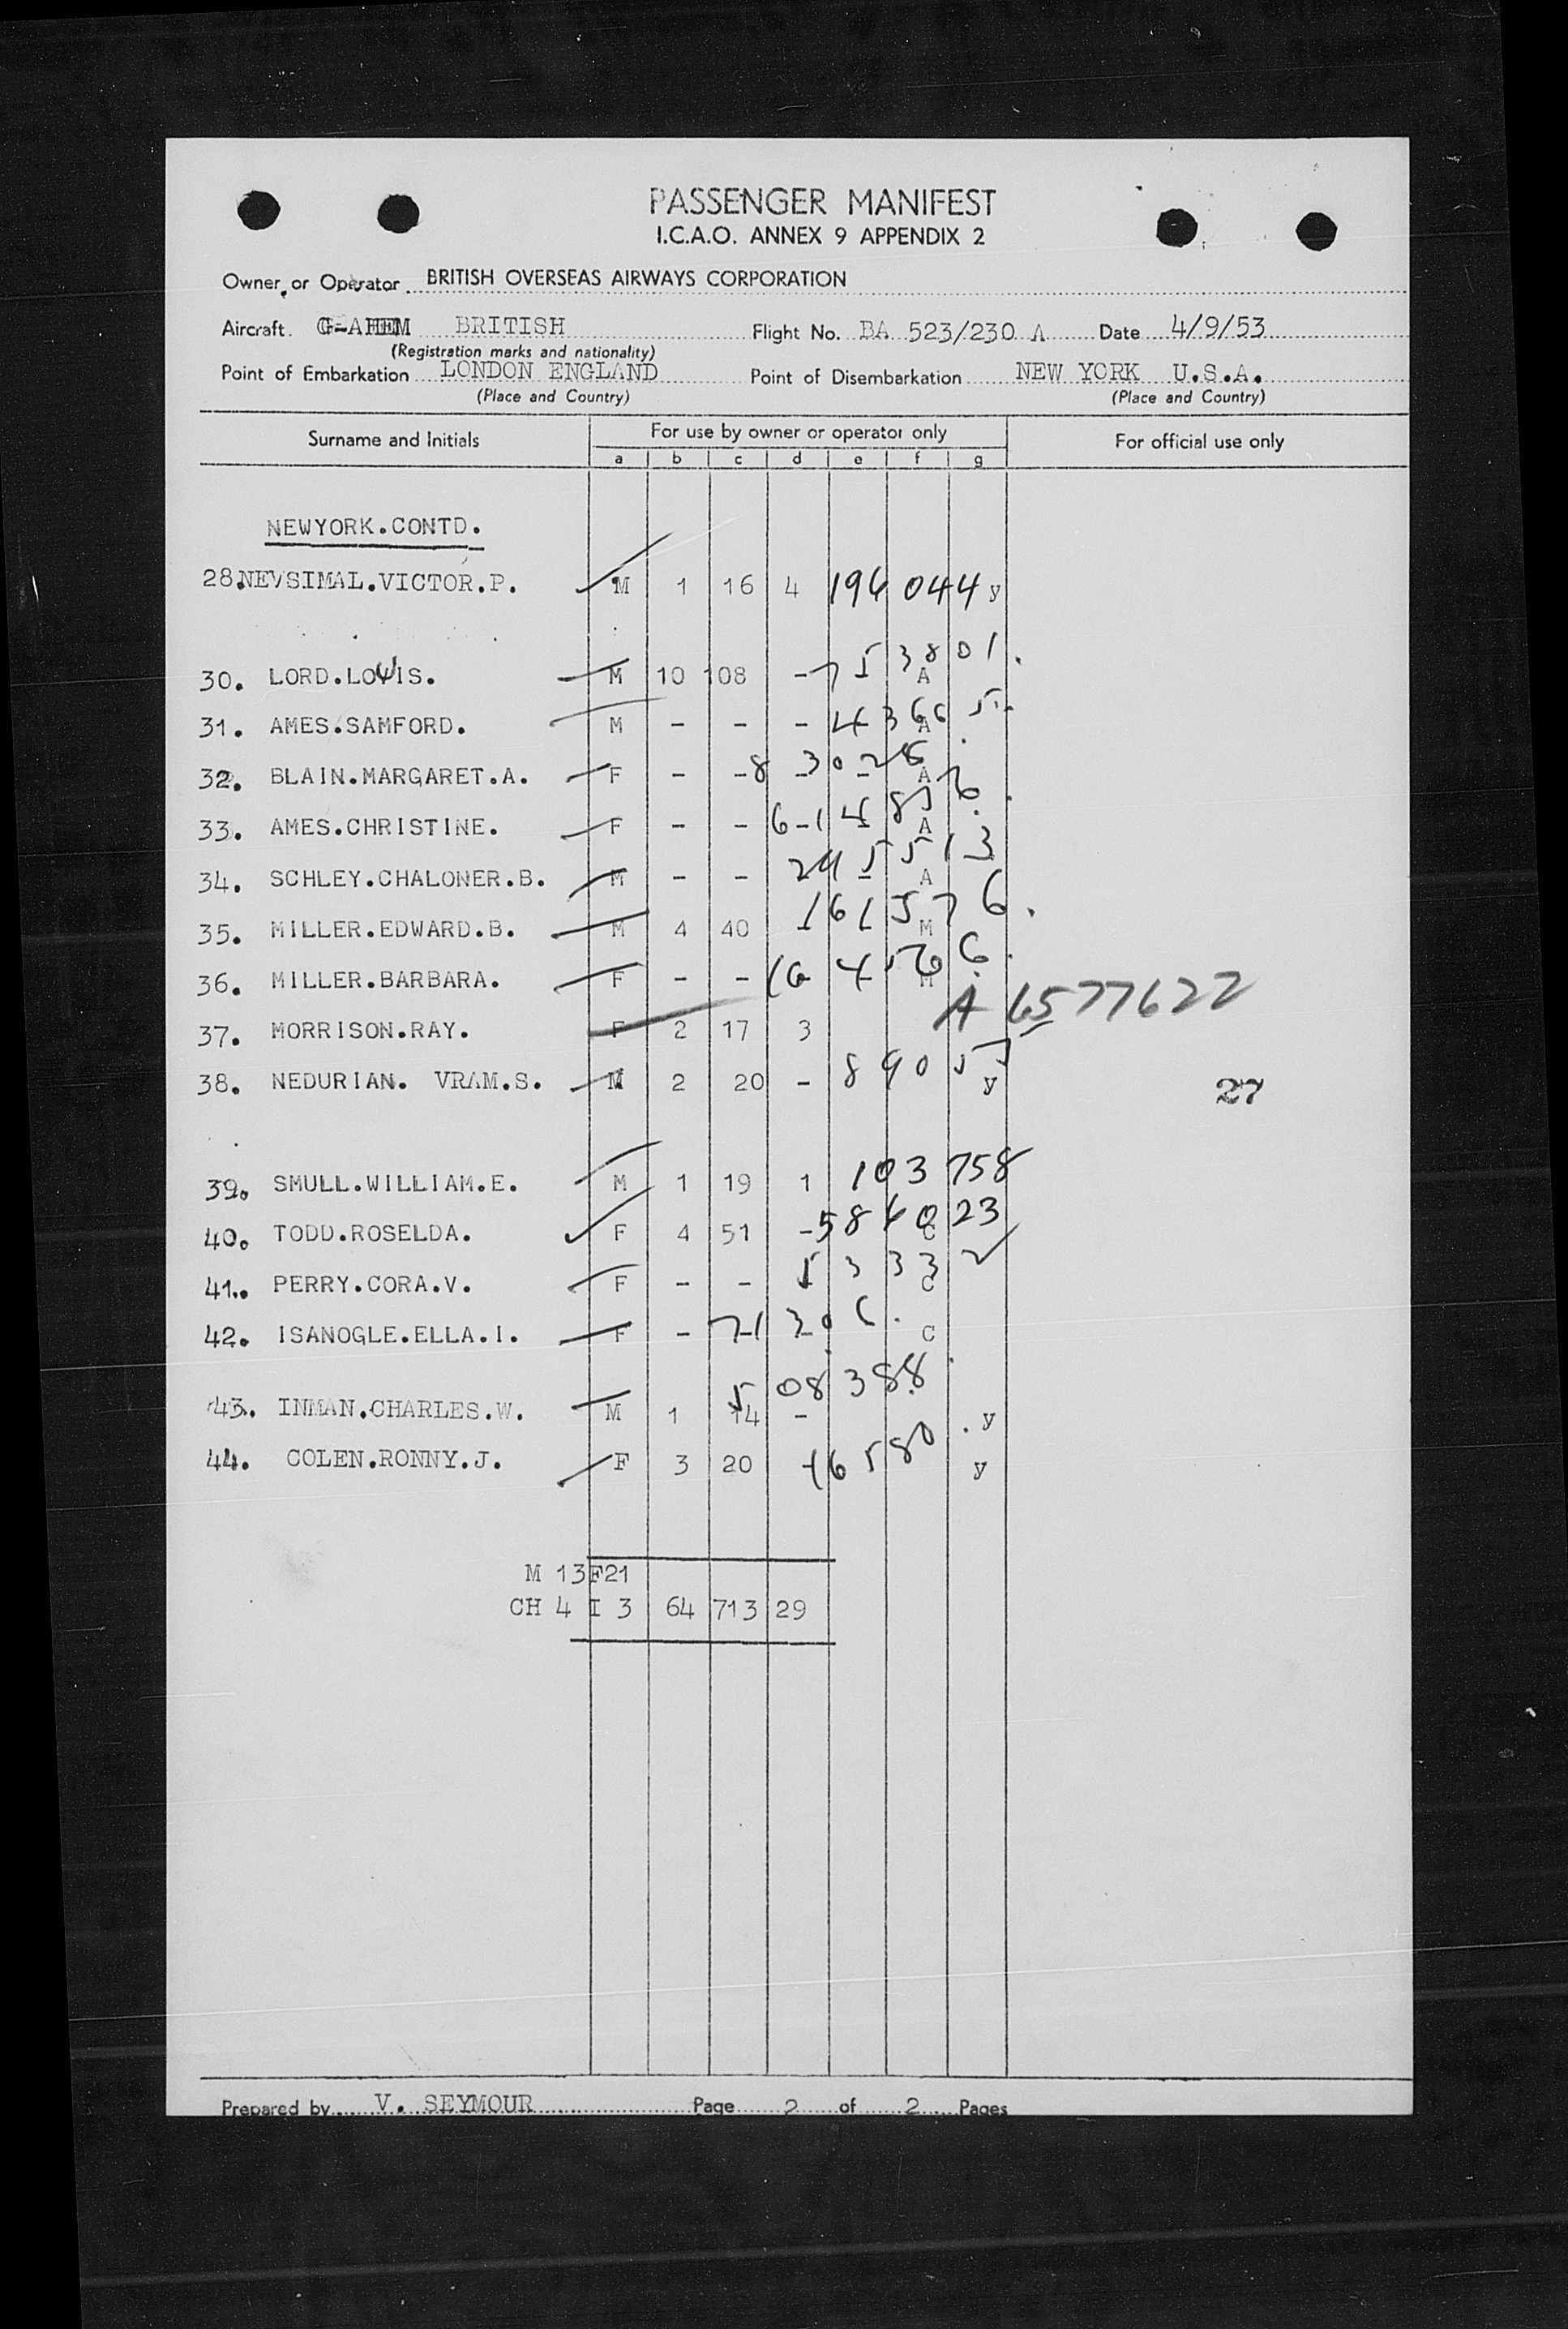 PASSENGER MANIFEST
I.C.A.O. ANNEX 9 APPENDIX 2
Owner or Operator BRITISH OVERSEAS AIRWAYS CORPORATION
Aircraft BRITISH Flight No. BA 523/230 A Date 4/9/53
(Registration marks and nationality)
Point of Embarkation LONDON ENGLAND Point of Disembarkation NEW YORK U.S.A.
(Place and Country) (Place and Country)
Surname and Initials For use by owner or operator only For official use only
a b c d e f g
NEWYORK.CONTD.
28.NEVSIMAL.VICTOR.P. M 1 16 4 196 044 y
30. LORD.LOUIS. M 10 108 - 753801. A
31. AMES.SAMFORD. M - - - 43665 A
32. BLAIN.MARGARET.A. F - - - - A
33. AMES.CHRISTINE. F - - - - A
34. SCHLEY.CHALONER.B. M - - - 2455513 A
35. MILLER.EDWARD.B. M 4 40 - 161576. M
36. MILLER.BARBARA. F - - M
37. MORRISON.RAY. F 2 17 3 A 6577622
38. NEDURIAN. VRAM.S. M 2 20 - y
27
39. SMULL.WILLIAM.E. M 1 19 1 103 758
40. TODD.ROSELDA. F 4 51 - C
41.. PERRY.CORA.V. F - - - 53332 C
42. ISANOGLE.ELLA.I. F - - - C
43. INMAN.CHARLES.W. M 1 14 - 508388 y
44. COLEN.RONNY.J. F 3 20 - 16580 . y
M 13 F21
CH 4 I 3 64 713 29
Prepared by V. SEYMOUR Page 2 of 2 Pages